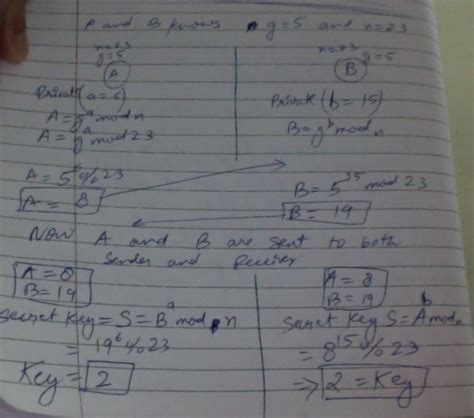 A and B knows g=5 and n=23
n=23
g=5
A
Private (a=6)
A=g^a mod n
A=g^a mod 23
A=5^6 % 23
A = 8
n=23
g=5
B
Private (b=15)
B=g^b mod n
B=5^15 mod 23
B= 19
Now A and B are sent to both
Sender and Receiver
A=8
B=19
Secret Key=S=B^a mod n
= 19^6 % 23
Key = 2
A=8
B=19
Secret Key S=A^b mod n
= 8^15 % 23
→ 2 = Key